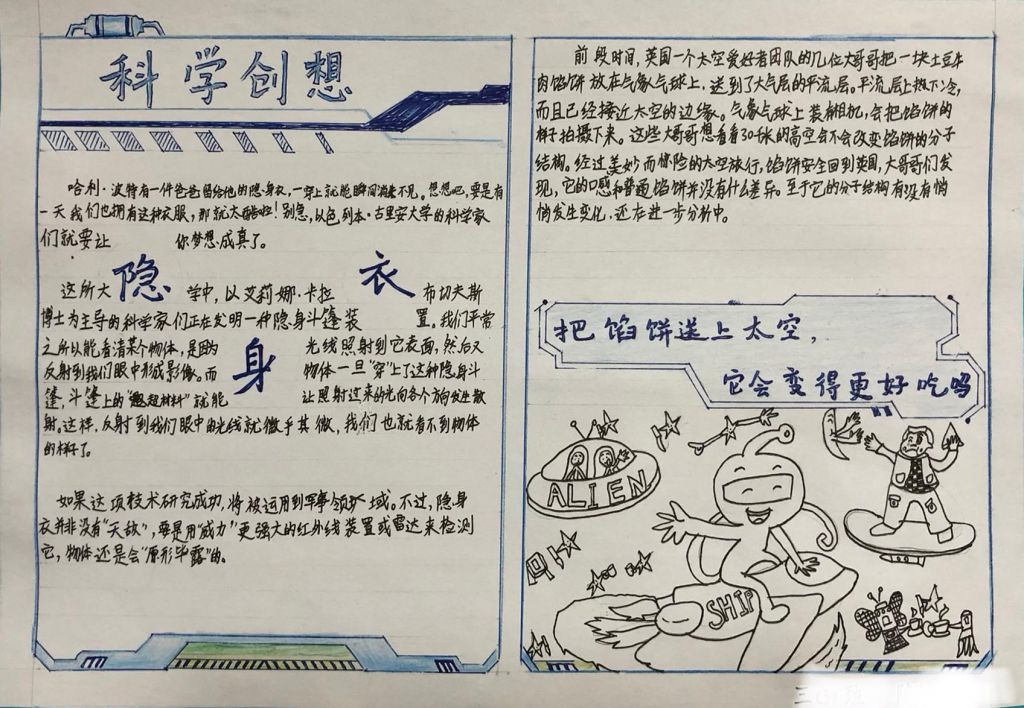 科学创想
哈利·波特有一件爸爸留给他的隐身衣,一穿上就能瞬间消失不见。想想吧,要是有
一天我们也拥有这种衣服,那就太酷啦!别急,以色列本·古里安大学的科学家
们就要让 你梦想成真了。
隐
身
衣
这所大 学中,以艾莉娜·卡拉 布切夫斯
博士为主导的科学家们正在发明一种隐身斗篷装 置。我们平常
之所以能看清某个物体,是因为 光线照射到它表面,然后又
反射到我们眼中形成影像。而 物体一旦“穿”上了这种隐身斗
篷,斗篷上的“超材料”就能 让照射过来的光向各个方向发生散
射。这样,反射到我们眼中的光线就微乎其微,我们也就看不到物体
的样子了。
如果这项技术研究成功,将被运用到军事领域。不过,隐身
衣并非没有“天敌”,要是用“威力”更强大的红外线装置或雷达来检测
它,物体还是会“原形毕露”的。
前段时间,英国一个太空爱好者团队的几位大哥哥把一块土豆牛
肉馅饼放在气象气球上,送到了大气层的平流层。平流层上热下冷,
而且已经接近太空的边缘。气象气球上装有相机,会把馅饼的
样子拍摄下来。这些大哥哥想看看30千米的高空会不会改变馅饼的分子
结构。经过美妙而惊险的太空旅行,馅饼安全回到英国,大哥哥们发
现,它的口感和普通馅饼并没有什么差异。至于它的分子结构有没有悄
悄发生变化,还在进一步分析中。
把馅饼送上太空,
它会变得更好吃吗
ALIEN
SHIP